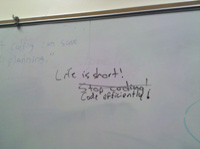 Life is short!
Stop coding!
Code efficiently!